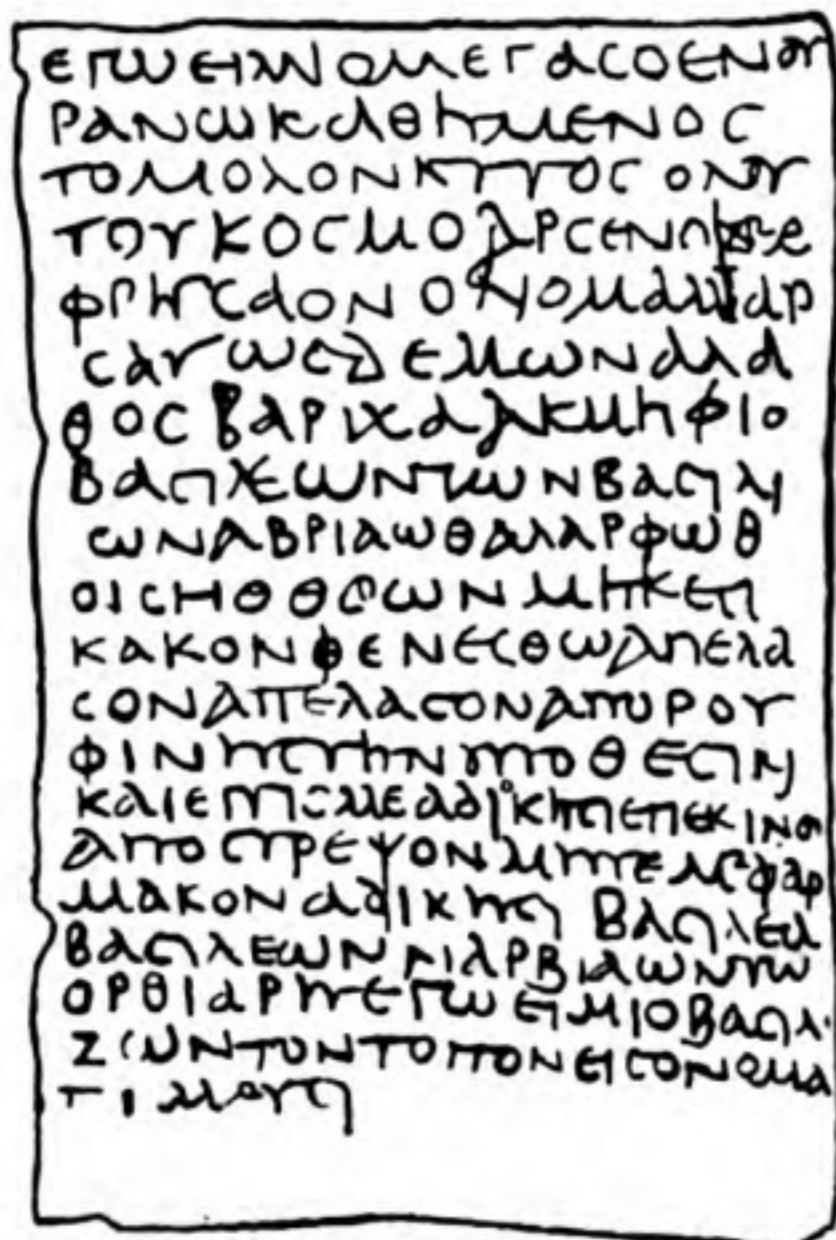 ΕΓΩΕΙΜΙΟΜΕΓΑCΟΕΝΟΥ
ΡΑΝΩΚΑΘΗΜΕΝΟC
ΤΟΜΟΛΟΝΚΥΤΟCΟΝΟΥ
ΤΟΥΚΟCΜΟ
ΦΡΗCΑΟΝΟΝΟΜΑΜΙΑΡ
CΑΥΩCΔΕΜΩΝΑΓΑ
ΘΟCΒΑΡΙΧΑΑΚΜΗΦΙΟ
ΒΑCΙΛΕΩΝΤΩΝΒΑCΙΛΙ
ΩΝΑΒΡΙΑΩΘΑΛΑΡΦΩΘ
ΟΙCΗΘΘΕΩΝΜΗΚΕΤΙ
ΚΑΚΟΝΦΕΝΕCΘΩΑΠΕΛΑ
CΟΝΑΠΕΛΑCΟΝΑΠΥΡΟΥ
ΦΙΝΗCΤΗΝΥΠΟΘΕCΙΝ
ΚΑΙΕΠΙCΜΕΑΔΙΚΗCΙΕΠΕΚΙΝΟ
ΑΠΟCΤΡΕΨΟΝΜΗΤΕΜΕΦΑΡ
ΜΑΚΟΝΑΔΙΚΗCΙ ΒΑCΙΛΕΥ
ΒΑCΙΛΕΩΝ
ΟΡΘΙΑΡΗΤΕΓΩΕΙΜΙΟΒΑCΙΛ
ΖΩΝΤΟΝΤΟΠΟΝΕΙCΟΝΟΜΑ
ΤΙΜΟΥCΙ